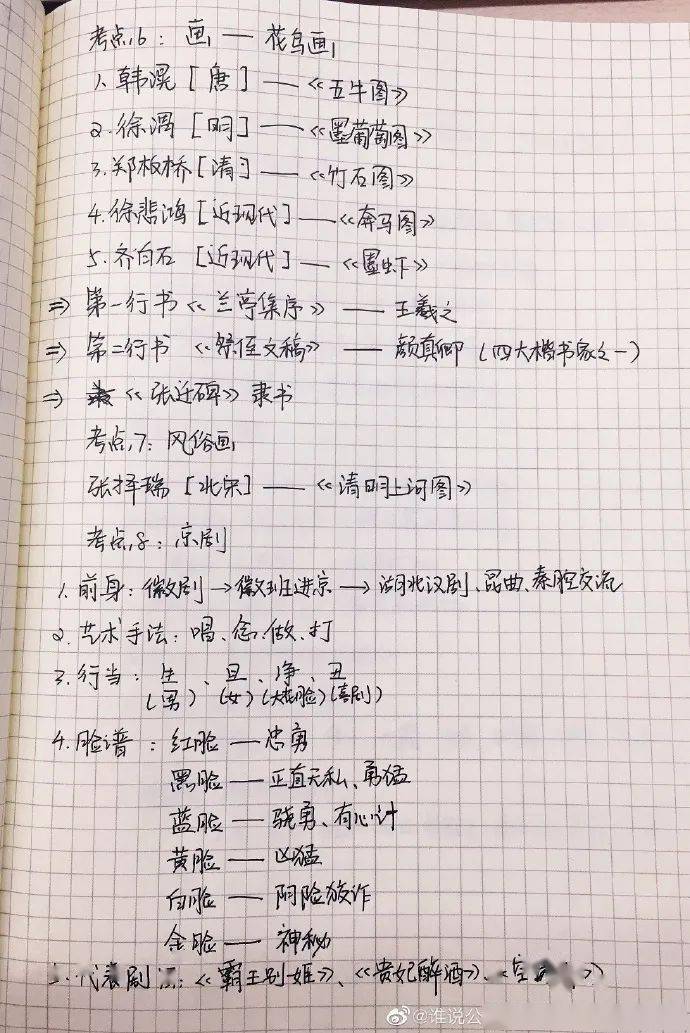 考点6：画 — 花鸟画
1、韩滉［唐］——《五牛图》
2.徐渭［明］——《墨葡萄图》
3.郑板桥［清］——《竹石图》
4.徐悲鸿［近现代］——《奔马图》
5.齐白石［近现代］——《墨虾》
⇒ 第一行书《兰亭集序》—— 王羲之
⇒ 第二行书《祭侄文稿》—— 颜真卿（四大楷书家之一）
⇒ 《张迁碑》隶书
考点7：风俗画
张择端［北宋］——《清明上河图》
考点8：京剧
1.前身：徽剧→徽班进京→湖北汉剧、昆曲、秦腔交流
2.艺术手法：唱、念、做、打
3.行当：生、旦、净、丑
（男）（女）（大花脸）（喜剧）
4.脸谱：红脸——忠勇
黑脸——正直无私、勇猛
蓝脸——骁勇、有心计
黄脸——凶猛
白脸——阴险狡诈
金脸——神秘
代表剧：《霸王别姬》、《贵妃醉酒》、
@谁说公